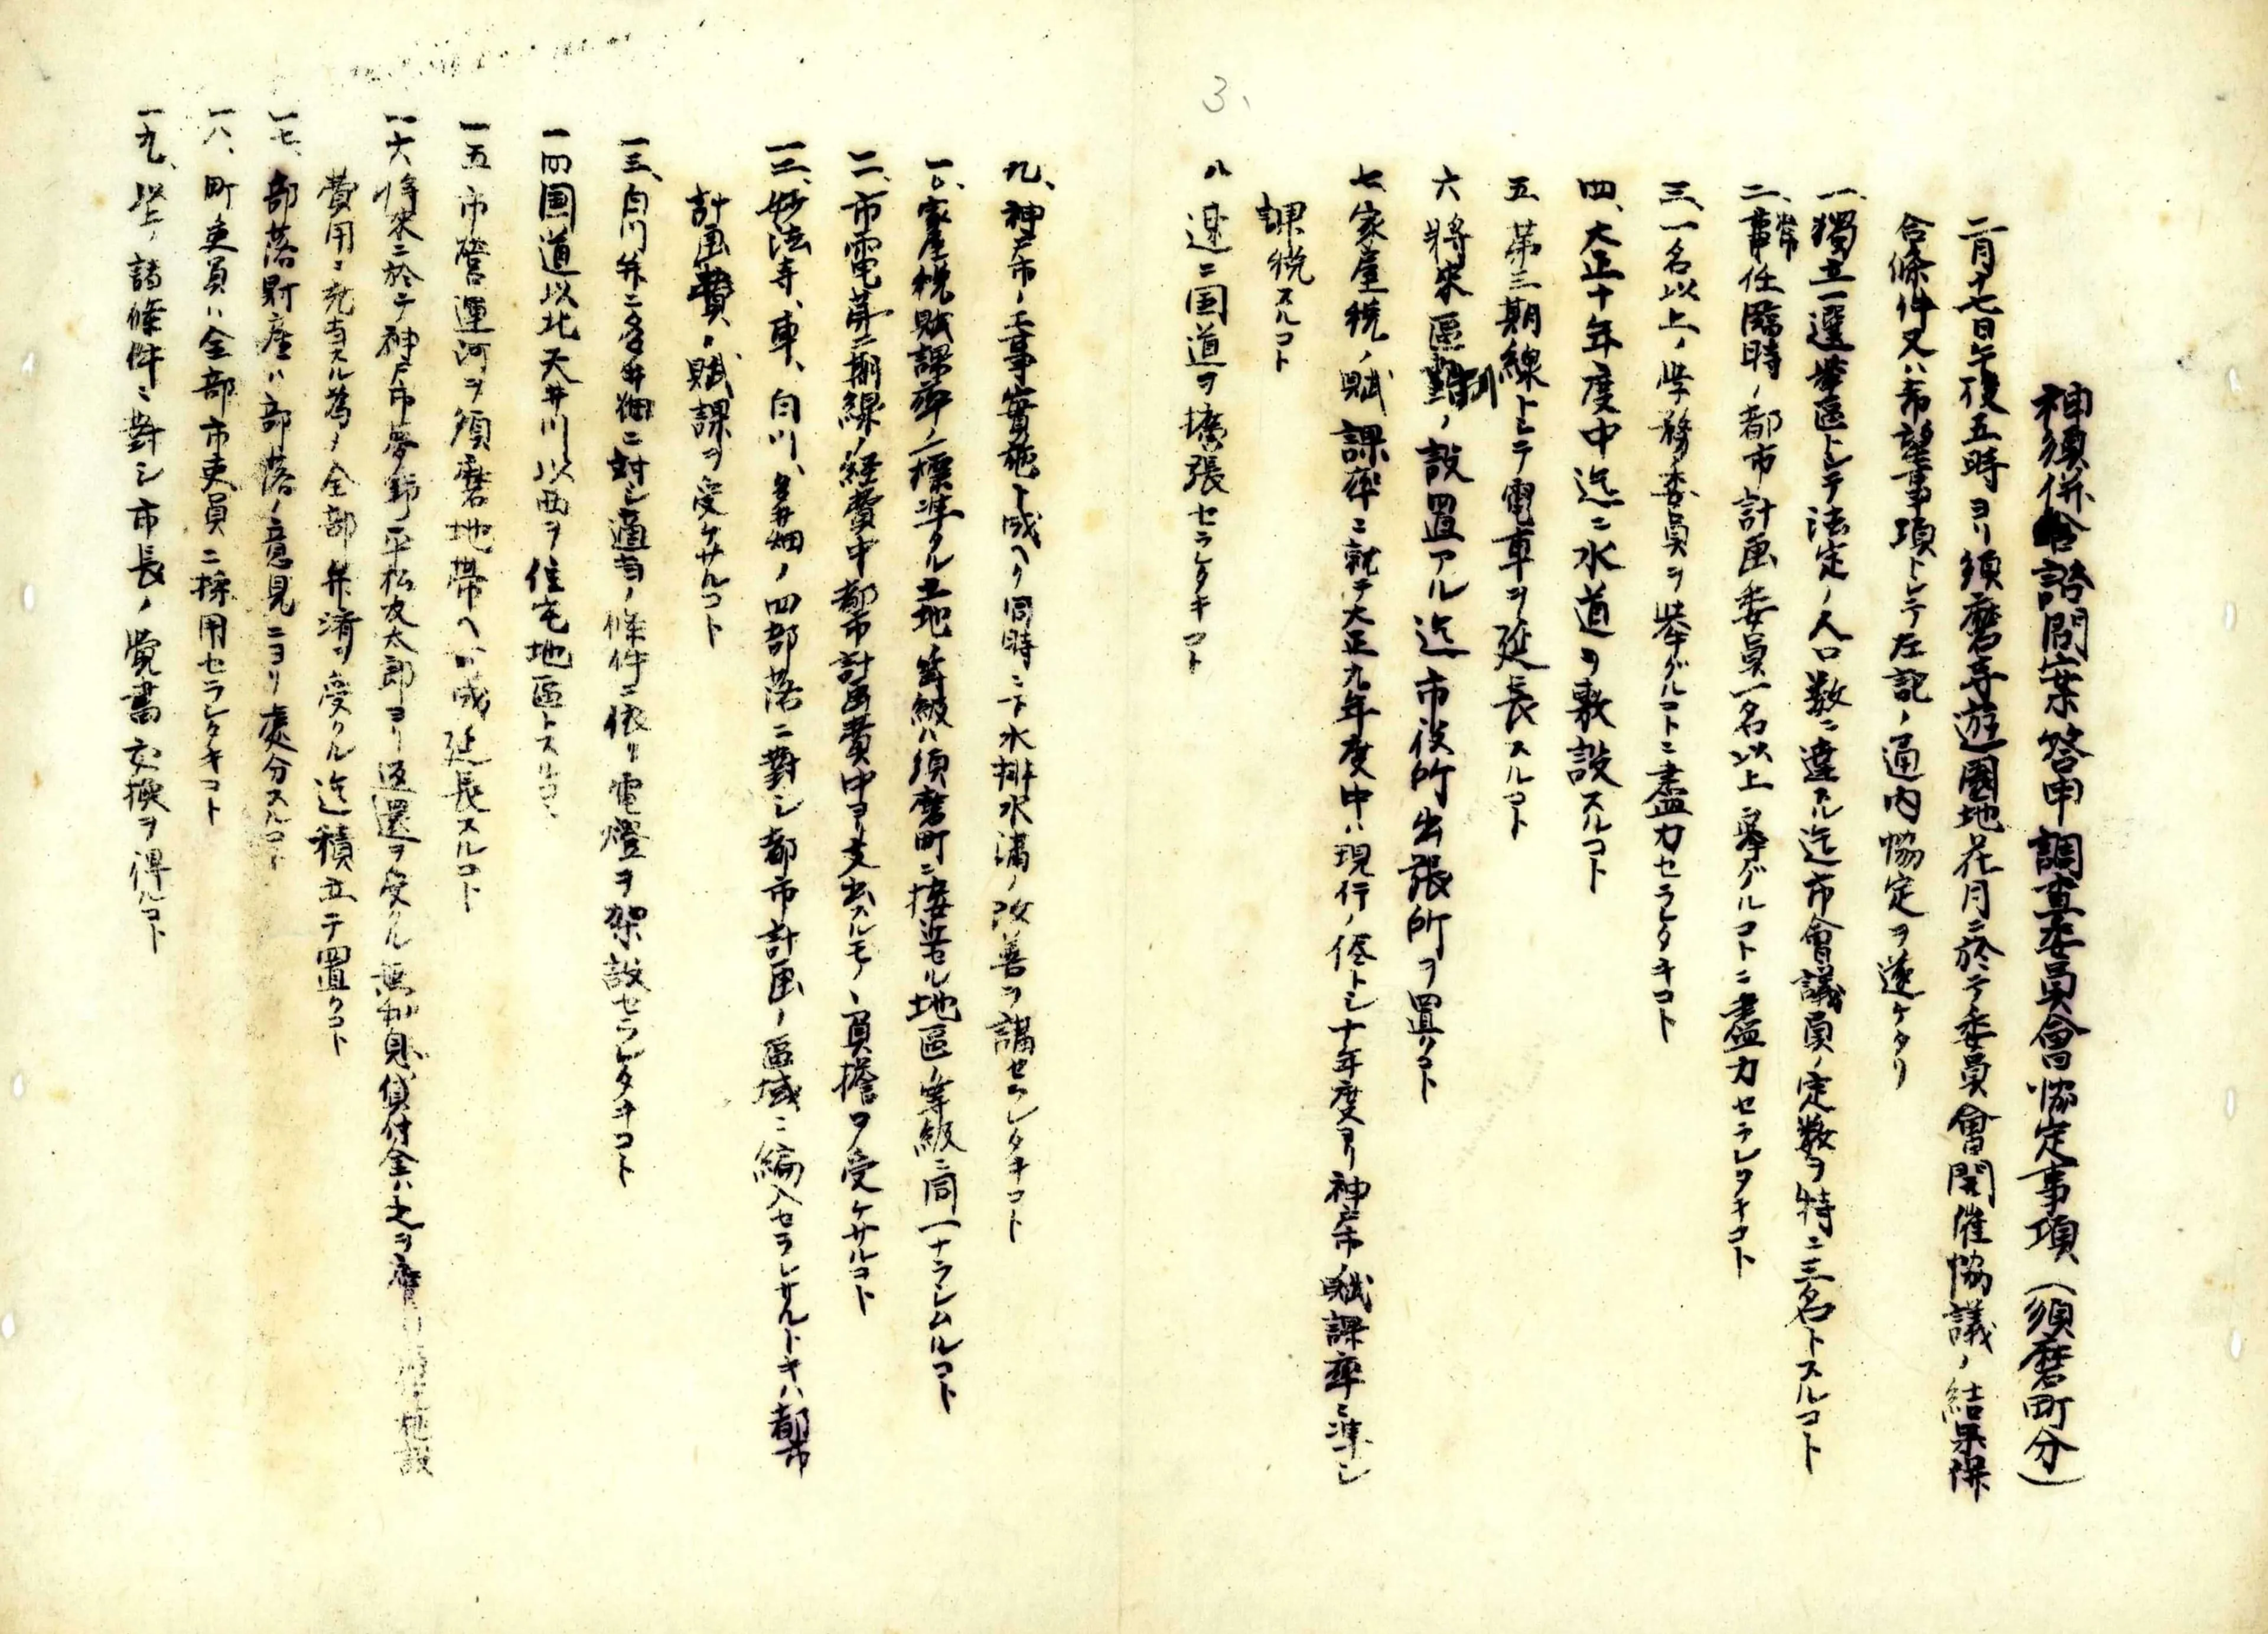 3、
神須併合諮問案答申調査委員會協定事項（須磨町分）
二月十七日午後五時ヨリ須磨寺遊園地花月ニ於テ委員會開催協議ノ結果併
合條件又ハ希望事項トシテ左記ノ通内協定ヲ遂ケタリ
一、獨立選擧區トシテ法定ノ人口数ニ達スル迄市會議員ノ定数ヲ特ニ三名トスルコト
二、常任臨時ノ都市計画委員一名以上ヲ擧グルコトニ盡力セラレタキコト
三、一名以上ノ学務委員ヲ挙グルコトニ盡力セラレタキコト
四、大正十年度中迄ニ水道ヲ敷設スルコト
五、第三期線トシテ電車ヲ延長スルコト
六 將来區制ノ設置アル迄市役所出張所ヲ置クコト
七、家屋税ノ賦課率ニ就テ大正九年度中ハ現行ノ侭トシ十年度ヨリ神戸市ノ賦課率ニ準シ
課税スルコト
八 速ニ国道ヲ擴張セラレタキコト
九、神戸市ノ工事實施ト成ヘク同時ニ下水排水溝ノ改善ヲ講セラレタキコト
一〇、家屋税賦課率ノ標準タル土地ノ等級ハ須磨町ニ接近セル地區ノ等級ニ同一ナラシムルコト
一一、市電第二期線ノ経費中都市計画費中ヨリ支出スルモノヽ負擔ヲ受ケサルコト
一二、妙法寺、車、白川、多井畑ノ四部落ニ對シ都市計画ノ區域ニ編入セラレサルトキハ都市
計画費ノ賦課ヲ受ケサルコト
一三、白川并ニ多井畑ニ対シ適当ノ條件ニ依リ電燈ヲ架設セラレタキコト
一四 国道以北天井川以西ヲ住宅地區トスルコト
一五 市營運河ヲ須磨地帶ヘ 成延長スルコト
一六 将来ニ於テ神戸市夢野平松友太郎ヨリ返還ヲ受クル無利息貸付金ハ之ヲ 施設
費用ニ充当スル為ノ全部并濟ヲ受クル迄積立テ置クコト
一七、部落財産ハ部落ノ意見ニヨリ處分スルコト
一八、町吏員ハ全部市吏員ニ採用セラレタキコト
一九、以上ノ諸條件ニ對シ市長ノ覚書交換ヲ得ルコト